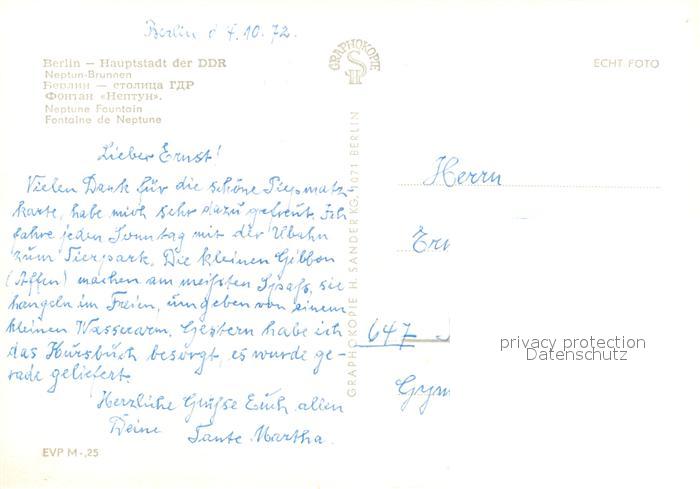 Berlin d 4.10.72.
Berlin – Hauptstadt der DDR
Neptun-Brunnen
Берлин — столица ГДР
Фонтан «Нептун».
Neptune Fountain
Fontaine de Neptune
GRAPHOKOPIE
ECHT FOTO
Lieber Ernst!
Vielen Dank für die schöne Piepmatz-
karte, habe mich sehr dazu gefreut. Ich
fahre jeden Sonntag mit der Ubahn
zum Tierpark. Die kleinen Gibbon
(Affen) machen am meisten Spaß, sie
hangeln im Freien, umgeben von einem
kleinen Wasserarm. Gestern habe ich
das Kursbuch besorgt, es wurde ge-
rade geliefert.
Herzliche Grüße Euch allen
Deine Tante Martha.
EVP M -,25
GRAPHOKOPIE H. SANDER KG, 1071 BERLIN
Herrn
647
privacy protection
Datenschutz